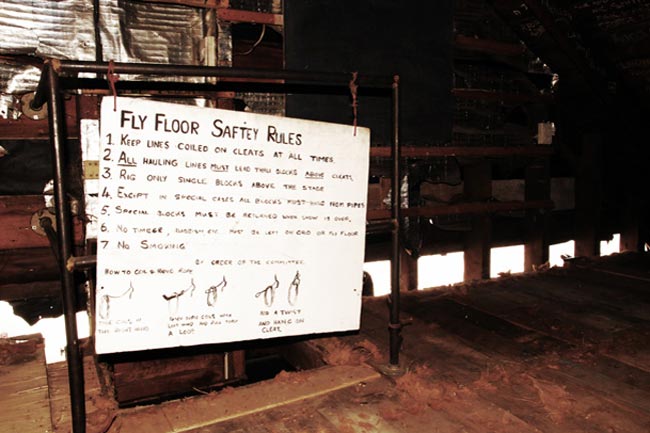 FLY FLOOR SAFTEY RULES
1. KEEP LINES COILED ON CLEATS AT ALL TIMES.
2. ALL HAULING LINES MUST LEAD THRU BLOCKS ABOVE CLEATS.
3 RIG ONLY SINGLE BLOCKS ABOVE THE STAGE
4. EXCEPT IN SPECIAL CASES ALL BLOCKS MUST HANG FROM PIPES
5. SPECIAL BLOCKS MUST BE RETURNED WHEN SHOW IS OVER.
6. NO TIMBER, ETC. MUST BE LEFT ON GRID OR FLY FLOOR
7 NO SMOKING
BY ORDER OF THE COMMITTEE.
HOW TO COIL & HANG ROPE
COIL IN
THE RIGHT HAND
COILS WITH
LEFT HAND AND TURN
A LOOP
ADD A TWIST
AND HANG ON
CLEAT.